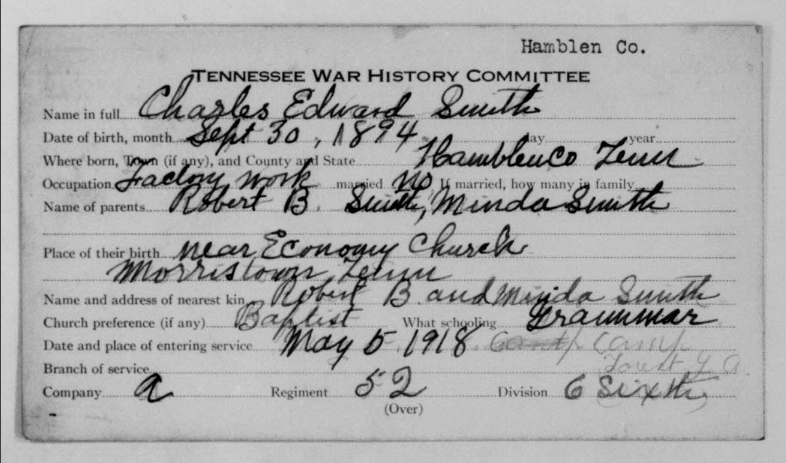 Hamblen Co.
TENNESSEE WAR HISTORY COMMITTEE
Name in full Charles Edward Smith
Date of birth, month Sept 30, 1894 day year
Where born, Town (if any), and County and State Hamblen Co Tenn
Occupation Factory work married no If married, how many in family
Name of parents Robert B. Smith, Minda Smith
Place of their birth near Economy Church
Morristown Tenn
Name and address of nearest kin Robert B and Minda Smith
Church preference (if any) Baptist What schooling Grammar
Date and place of entering service May 5 1918 Camp
Forest
Branch of service
Company a Regiment 52 Division 6 Sixth
(Over)